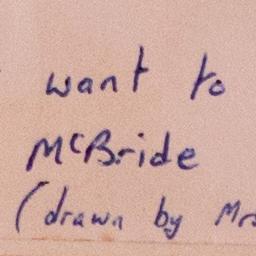 want to
McBride
(drawn by Mrs